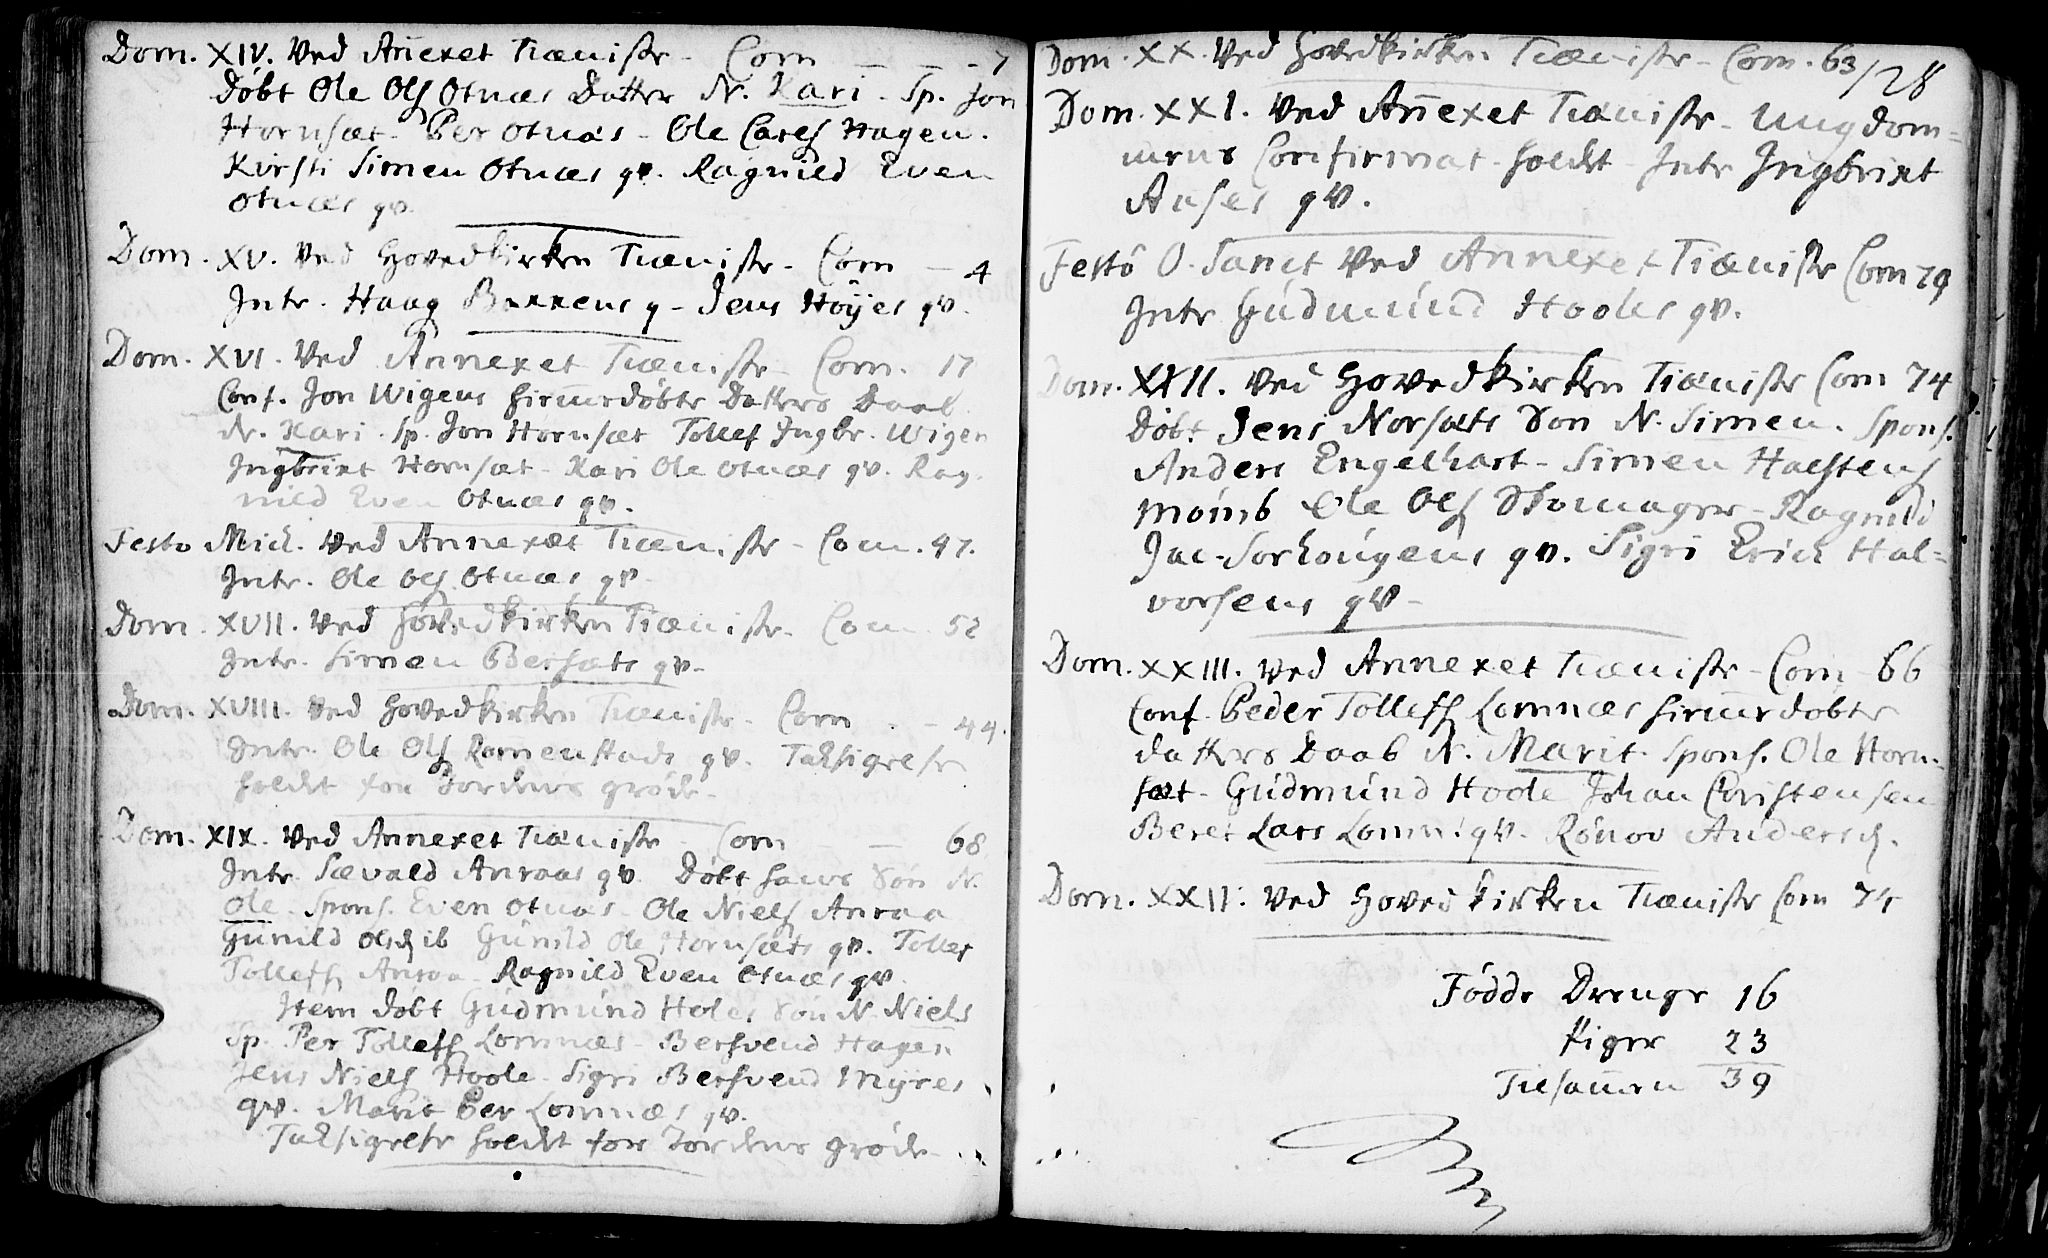 Dom. XIV. Ved Añexet Tiæniste - Com - - - 7
Døbt Ole Ols Otnæs Datter N. Kari. Sp. Jon
Hornsæt - Per Otnæs - Ole Lars Hagen.
Kirsti Simen Otnæs qv. Ragnild Even
Otnæs qv.
Dom. XV. Ved Hovedkirken Tiæniste - Com - 4
Intr. Haag q - Jens Høÿes qv.
Dom. XVI. Ved Annexet Tiæniste - Com. 17
Conf. Jon Wigens hiem̄edøbte Datters Daab
N. Kari. Sp. Jon Hornsæt Tollef Ingbr. Wigen
Ingbrixt Hornsæt - Kari Ole Otnæs qv. Rag
nild Even Otnæs qv.
Festo Mich. Ved Annexet Tiæniste - Com. 47.
Intr. Ole Ols Otnæs qv.
Dom. XVII. Ved Hovedkirken Tiæniste - Com. 52
Intr. Simen Bersæts qv.
Dom. XVIII. Ved Hovedkirken Tiæniste - Com. - 44.
Intr. Ole Ols Romenstads qv. Taksigelse
holdt for Jordens grøde -
Dom. XIX. Ved Annexet Tiæniste - Com - - 68
Intr. Sævald Anraas qv. Døbt hans Søn N.
Ole. Spons. Even Otnæs - Ole Niels Anraa
Gunild Olsd ib Gunild Ole Hornsæts qv. Tollef
Tollefs Anraa - Ragnild Even Otnæs qv.
Item døbt Gudmund Holes Søn N. Niels
Sp. Per Tollefs Lomnæs - Bersvend Hagen
Jens Niels Hoole - Sigri Bersvend Myres
qv. Marit Per Lomnæs qv.
Taksigelse holdt for Jordens grøde -
128
Dom. XX. Ved Hovedkirken Tiæniste - Com. 63
Dom. XXI. Ved Añexet Tiæniste - Ungdom-
mens Confirmat. holdt - Intr Ingbrixt
Anses qv.
Festo O. Sanct Ved Annexet Tiæniste Com 79
Intr Gudmund Hooles qv.
Dom. XXII. Ved Hovedkirken Tiæniste Com 74
Døbt Jens Norsæts Søn N. Simen. Spons.
Anders Engelhart - Simen Halstens
Moinb Ole Ols Skomager - Ragnild
Jac. Sorhougens qv. Sigri Erich Hal-
vorsens qv -
Dom. XXIII. Ved Annexet Tiæniste - Com - 66
Conf. Peder Tollefs Lomnæs hiem̄edøbte
datters Daab N. Marit. Spons. Ole Horn-
sæt - Gudmund Hoole Johan Christensen
Beret Lars Lomn: qv. Rønov Andersd.
Dom. XXII: Ved Hovedkirken Tiæniste Com 74
Fødde Drenge 16
Piger 23
Tilsam̄en 39